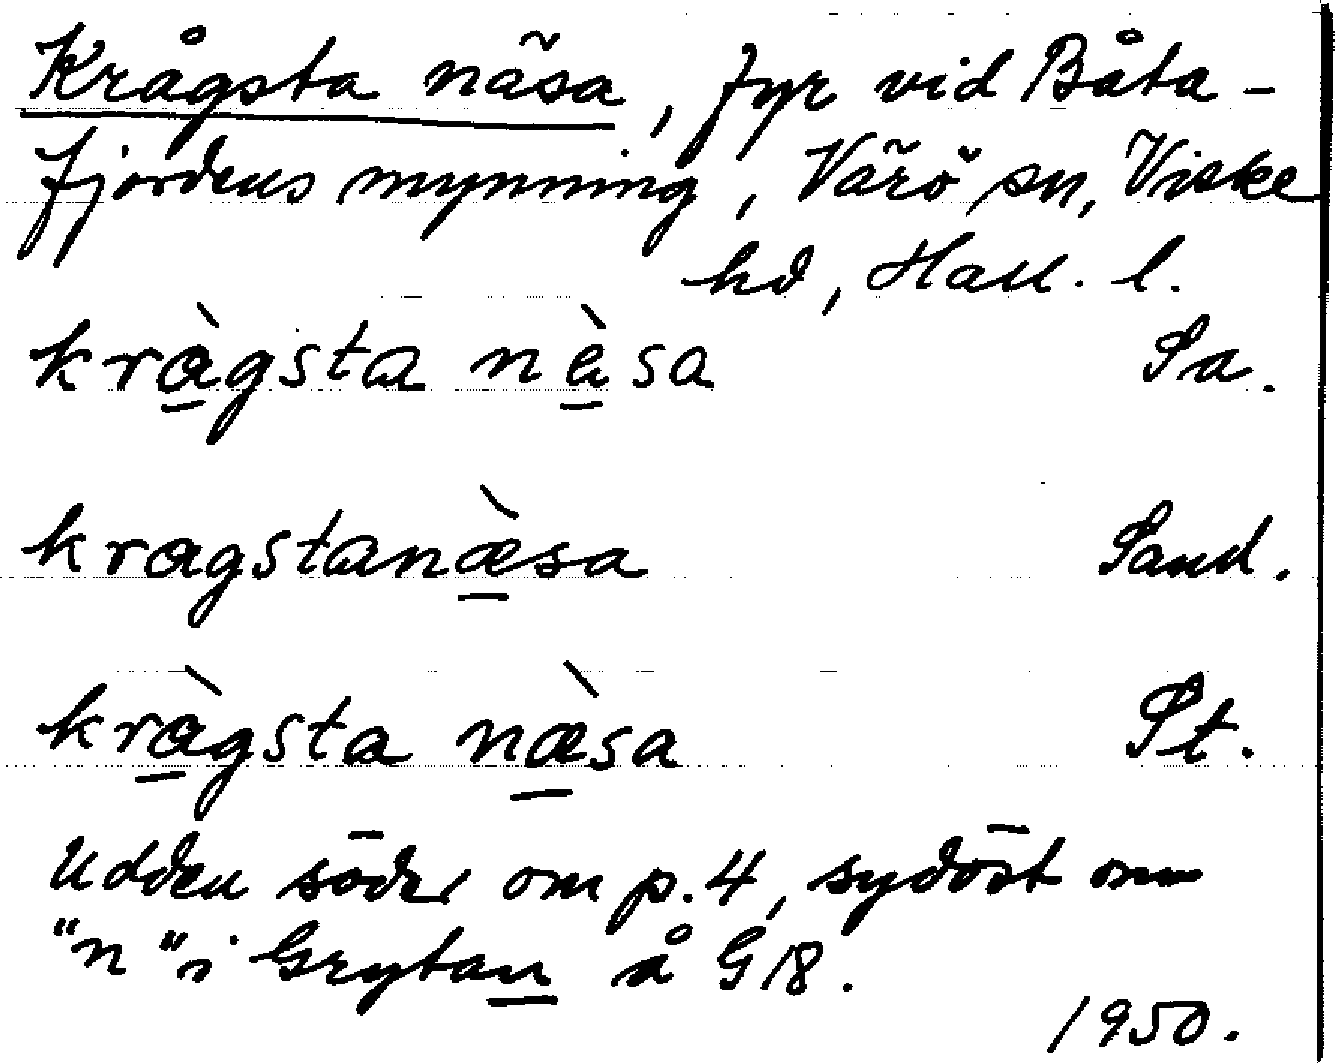 Krågsta näsa, fyr vid Båta-
fjordens mynning, Värö sn, Viske
hd, Hall. l.
kràgsta næ̀sa Sa.
kragstanæ̀sa Sand.
kràgsta næ̀sa St.
Udden söder om p. 4, sydöst om
"n" i Grytan å G 18.
1950.